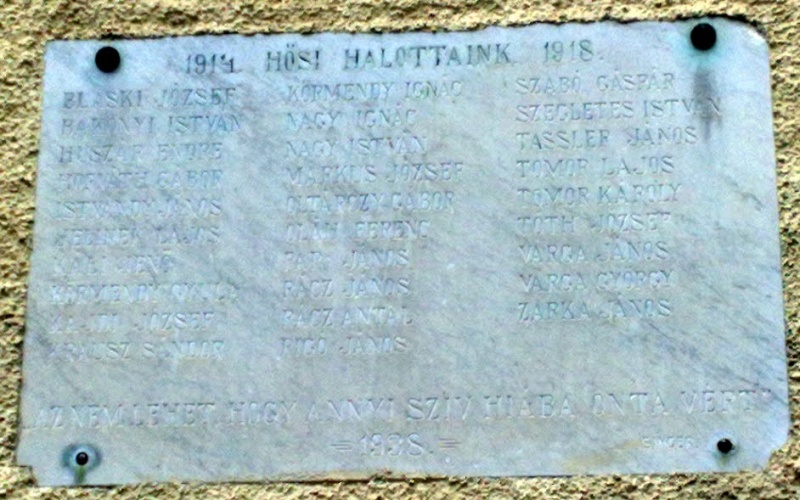 1914. HŐSI HALOTTAINK 1918.
BLASKI JÓZSEF
BAKONYI ISTVÁN
HUSZÁR ENDRE
HORVÁTH GÁBOR
ISTVÁNDY JÁNOS
LAJOS
JENŐ
KÖRMENDY GYULA
JÓZSEF
KRAUSZ SÁNDOR
KÖRMENDY IGNÁC
NAGY IGNÁC
NAGY ISTVÁN
MÁRKUS JÓZSEF
OLTÁRCZY GÁBOR
OLÁH FERENC
PAP JÁNOS
RÁCZ JÁNOS
RÁCZ ANTAL
RIGÓ JÁNOS
SZABÓ GÁSPÁR
SZEGLETES ISTVÁN
TASSLER JÁNOS
TOMOR LAJOS
TOMOR KÁROLY
TÓTH JÓZSEF
VARGA JÁNOS
VARGA GYÖRGY
ZARKA JÁNOS
"AZ NEM LEHET, HOGY ANNYI SZÍV HIÁBA ONTA VÉRT"
=1938.=
SINGER